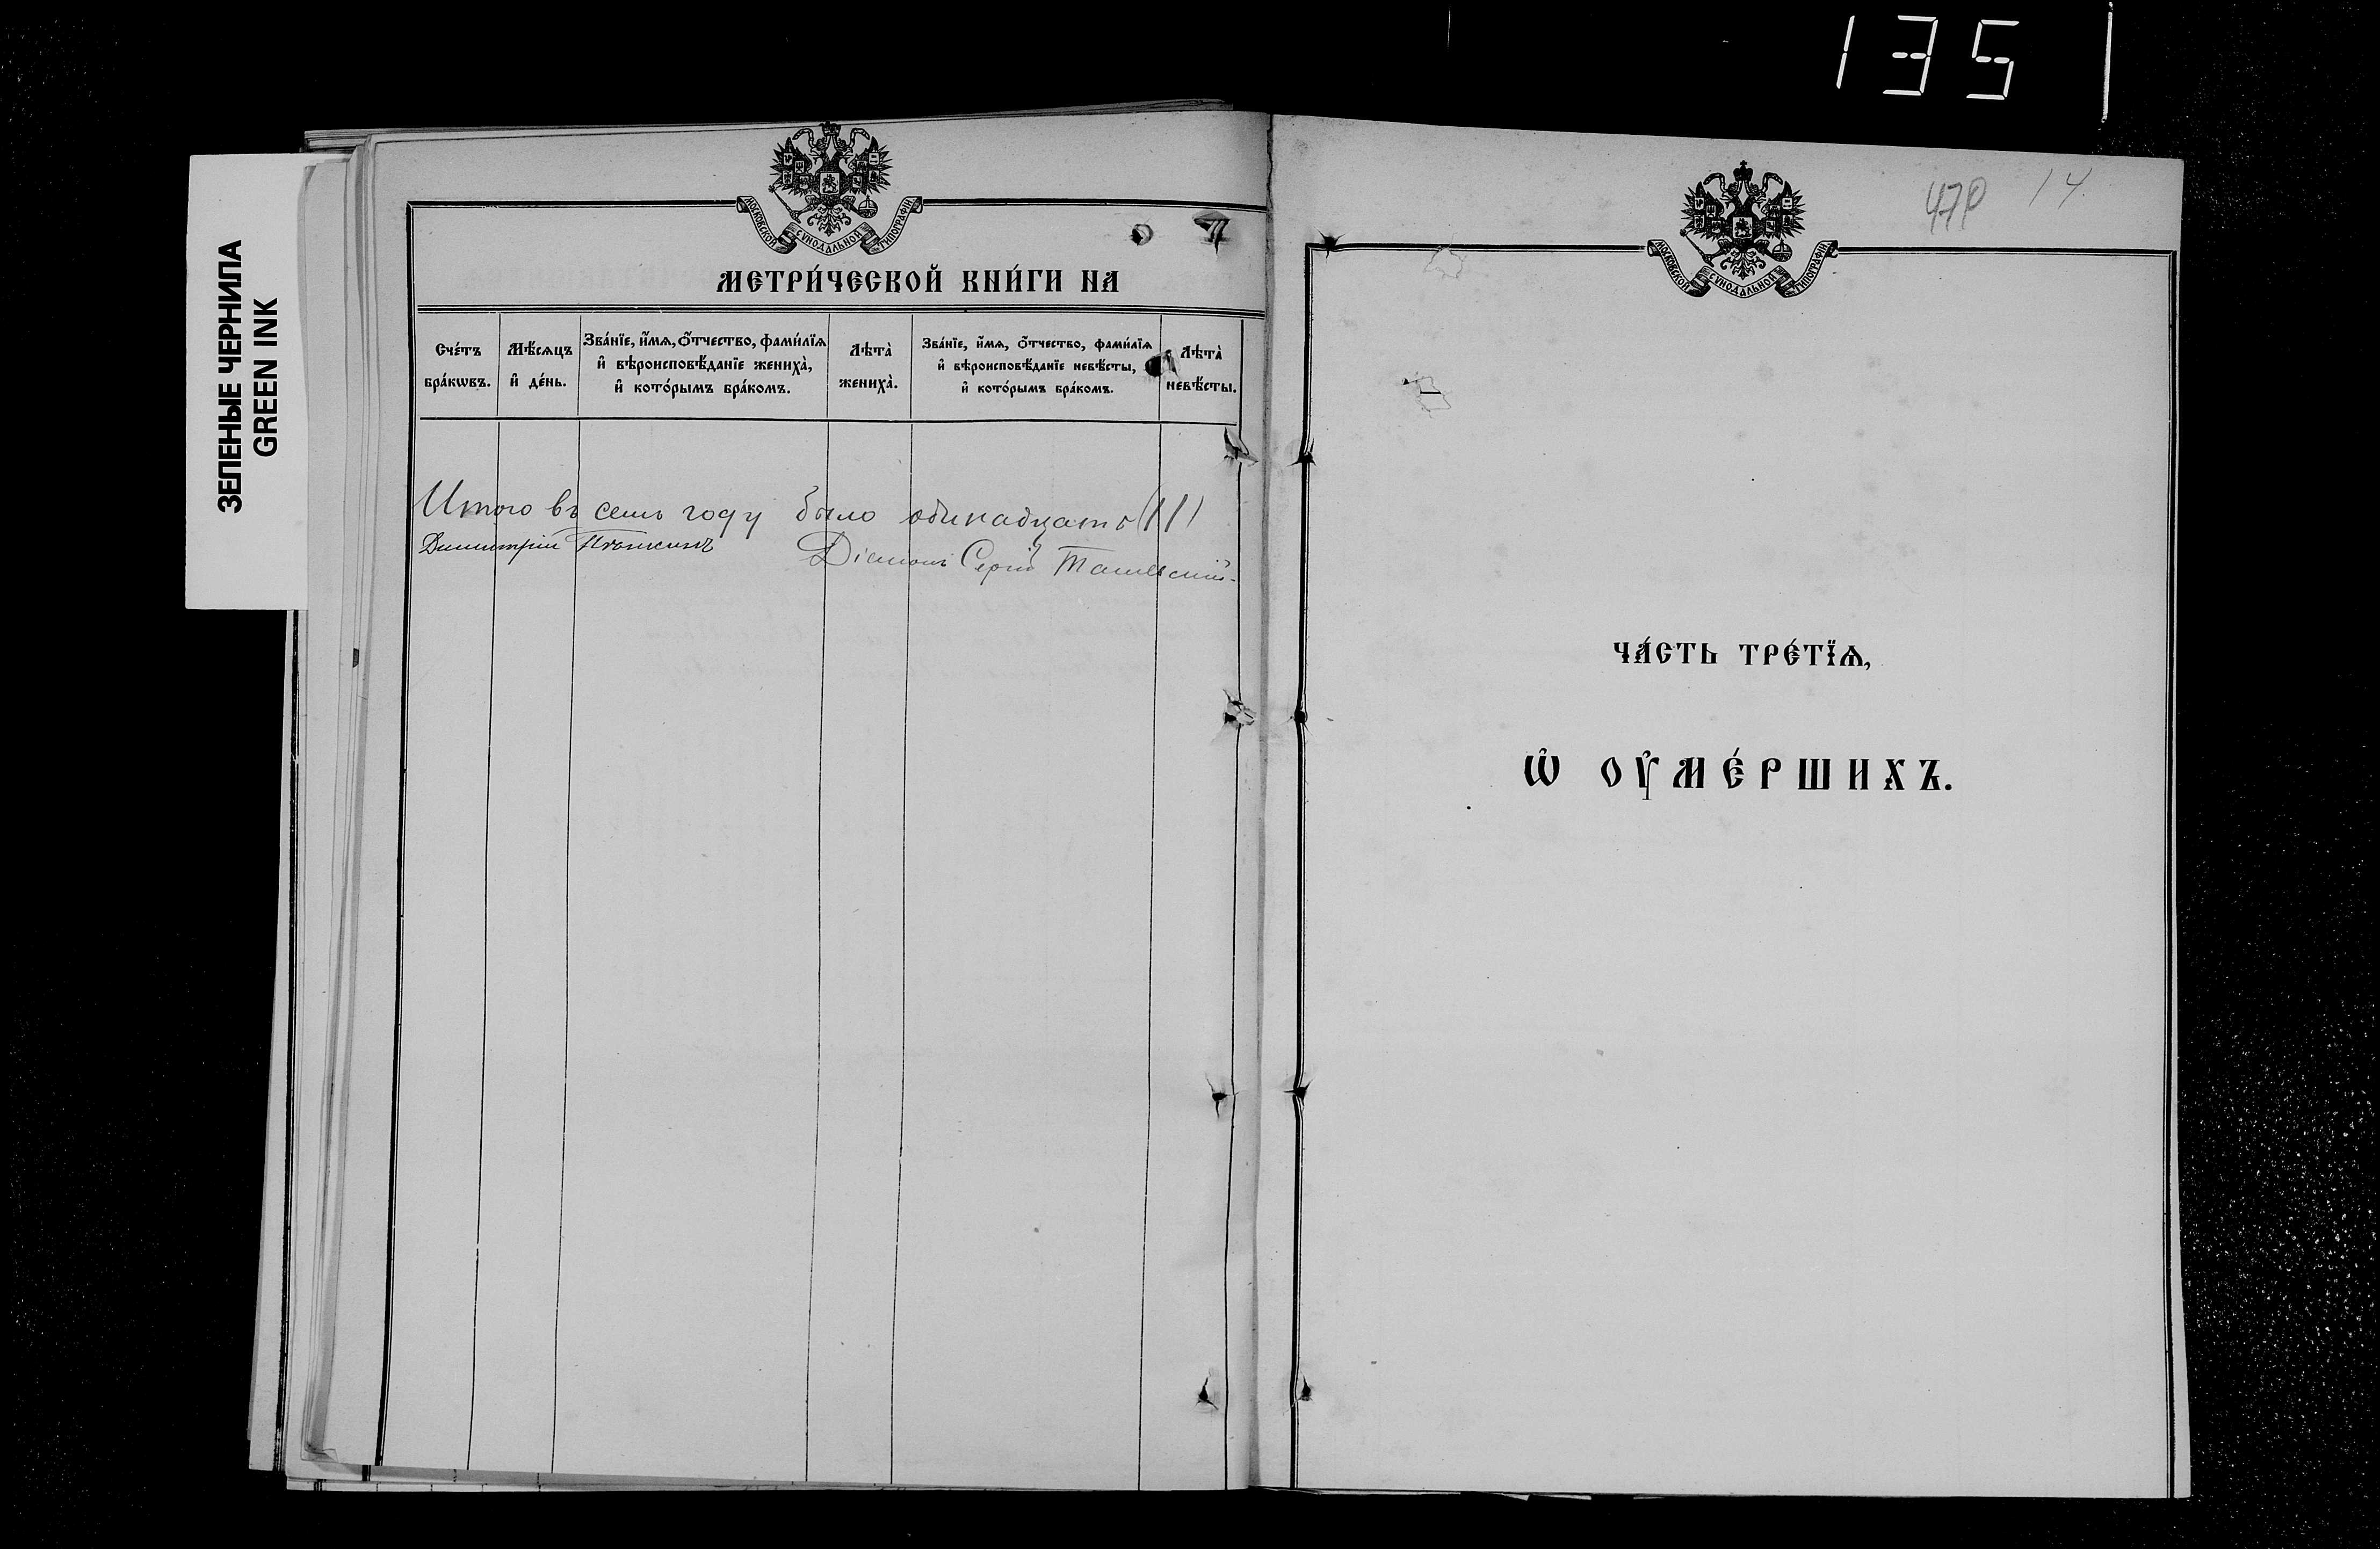 135
ЗЕЛЕНЫЕ ЧЕРНИЛА
GREEN INK
МОСКОВСКОЙ СѴНОДАЛЬНОЙ ТИПОГРАФІИ
МЕТРИ́ЧЕСКОЙ КНИ́ГИ НА
Сче́тъ бра́кѡвъ.
Мѣ́сѧцъ и҆ де́нь.
Зва́нїе, и҆́мѧ, ѻ҆́тчество, фами́лїѧ и҆ вѣроисповѣ́данїе женихà, и҆ кото́рымъ бра́комъ.
Лѣта̀ жениха̀.
Зва́нїе, и҆́мѧ, ѻ҆́тчество, фами́лїѧ и҆ вѣроисповѣ́данїе невѣ́сты, и҆ кото́рымъ бра́комъ.
Лѣта̀ невѣ́сты.
Итого въ семъ году было одинадцать (11)
Димитрій
Діаконъ Сергій
МОСКОВСКОЙ СѴНОДАЛЬНОЙ ТИПОГРАФІИ
14.
ЧА́СТЬ ТРЕ́ТЇѦ,
Ѡ҆ ОУ҆МЕ́РШИХЪ.